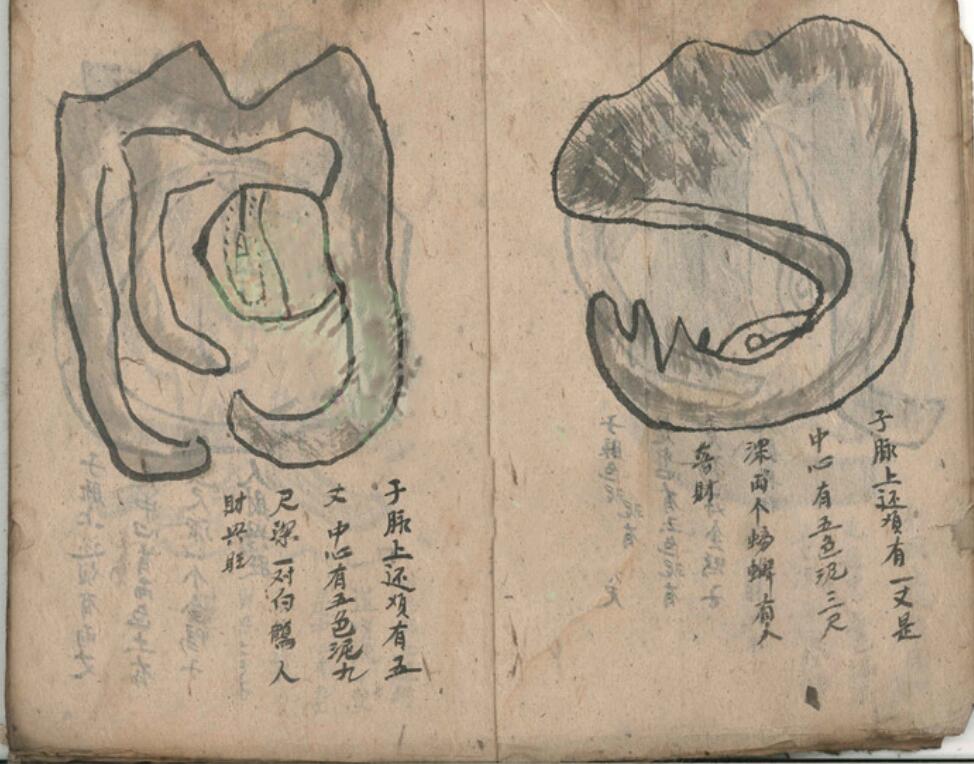 子脉上还湏有一丈是
中心有五色泥三尺
深两个蝪蜱有人
喜财
子脉上还湏有五
丈中心有五色泥九
尺深一对白鶴人
财兴旺